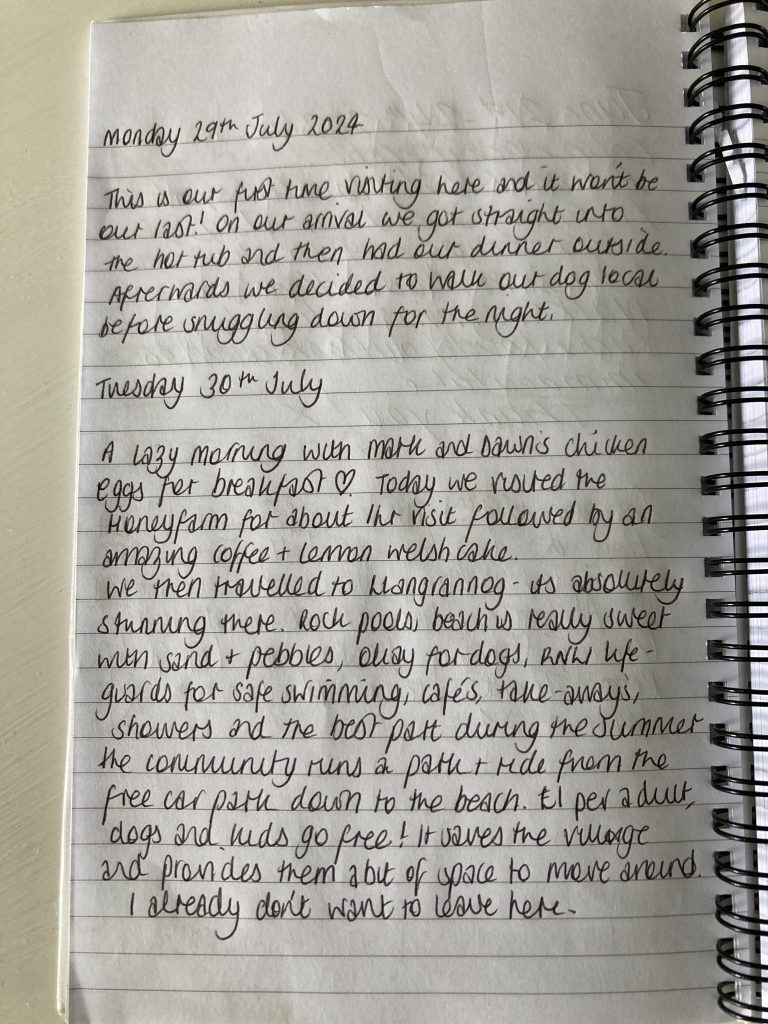 Monday 29th July 2024
This is our first time visiting here and it won't be
our last! On our arrival we got straight into
the hot tub and then had our dinner outside.
Afterwards we decided to walk our dog local
before snuggling down for the night.
Tuesday 30th July
A lazy morning with Mark and Dawn's chicken
eggs for breakfast ♡. Today we visited the
Honeyfarm for about 1hr visit followed by an
amazing coffee + lemon welsh cake.
We then travelled to Llangrannog - its absolutely
stunning there. Rock pools, beach is really sweet
with sand + pebbles, okay for dogs, RNLI life-
guards for safe swimming, cafés, take-aways,
showers and the best part during the summer
the community runs a park + ride from the
free car park down to the beach. £1 per adult,
dogs and kids go free! It saves the village
and provides them a bit of space to move around.
I already don't want to leave here.